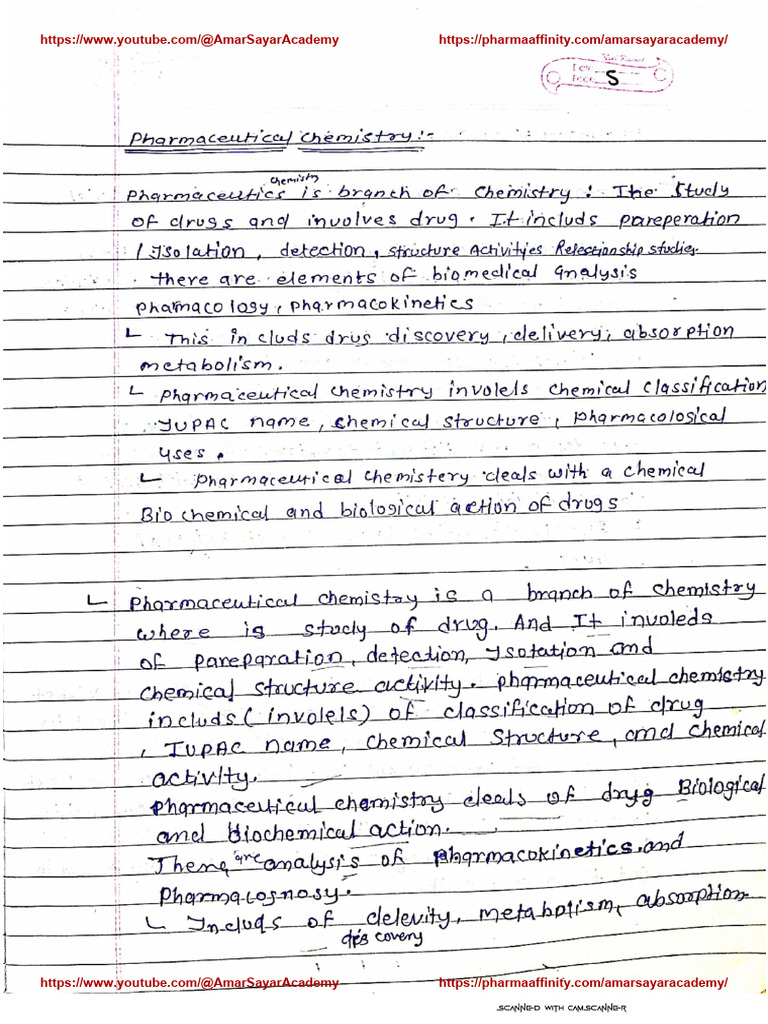 https://www.youtube.com/@AmarSayarAcademy https://pharmaaffinity.com/amarsayaracademy/
S
Pharmaceutical Chemistry:-
chemistry
Pharmaceutics is branch of Chemistry : The Study
of drugs and involves drug. It includs pareperation
/ Isolation, detection, structure Activityies Relectionship studies.
there are elements of biomedical analysis
phamacology, pharmacokinetics
This in cluds drus discovery, delivery, absorption
metabolism.
pharmaceutical chemistry involels chemical classification
IUPAC name, chemical structure, pharmacological
uses.
pharmaceutical chemistery deals with a chemical
Bio chemical and biological action of drugs
Pharmaceutical chemistry is a branch of chemistry
where is study of drug. And It involeds
of pareparation, detection, Isotation and
chemical structure activity. pharmaceutical chemistry
includs (involels) of classification of drug
, IUPAC name, chemical Structure, and chemical
activity.
pharmaceutical chemistry deals of drug Biological
and biochemical action.
There are analysis of pharmacokinetics and
Pharmacognosy.
Includs of delevity, metabolism, absorption
dis covery
https://www.youtube.com/@AmarSayarAcademy https://pharmaaffinity.com/amarsayaracademy/
SCANNED WITH CAMSCANNER